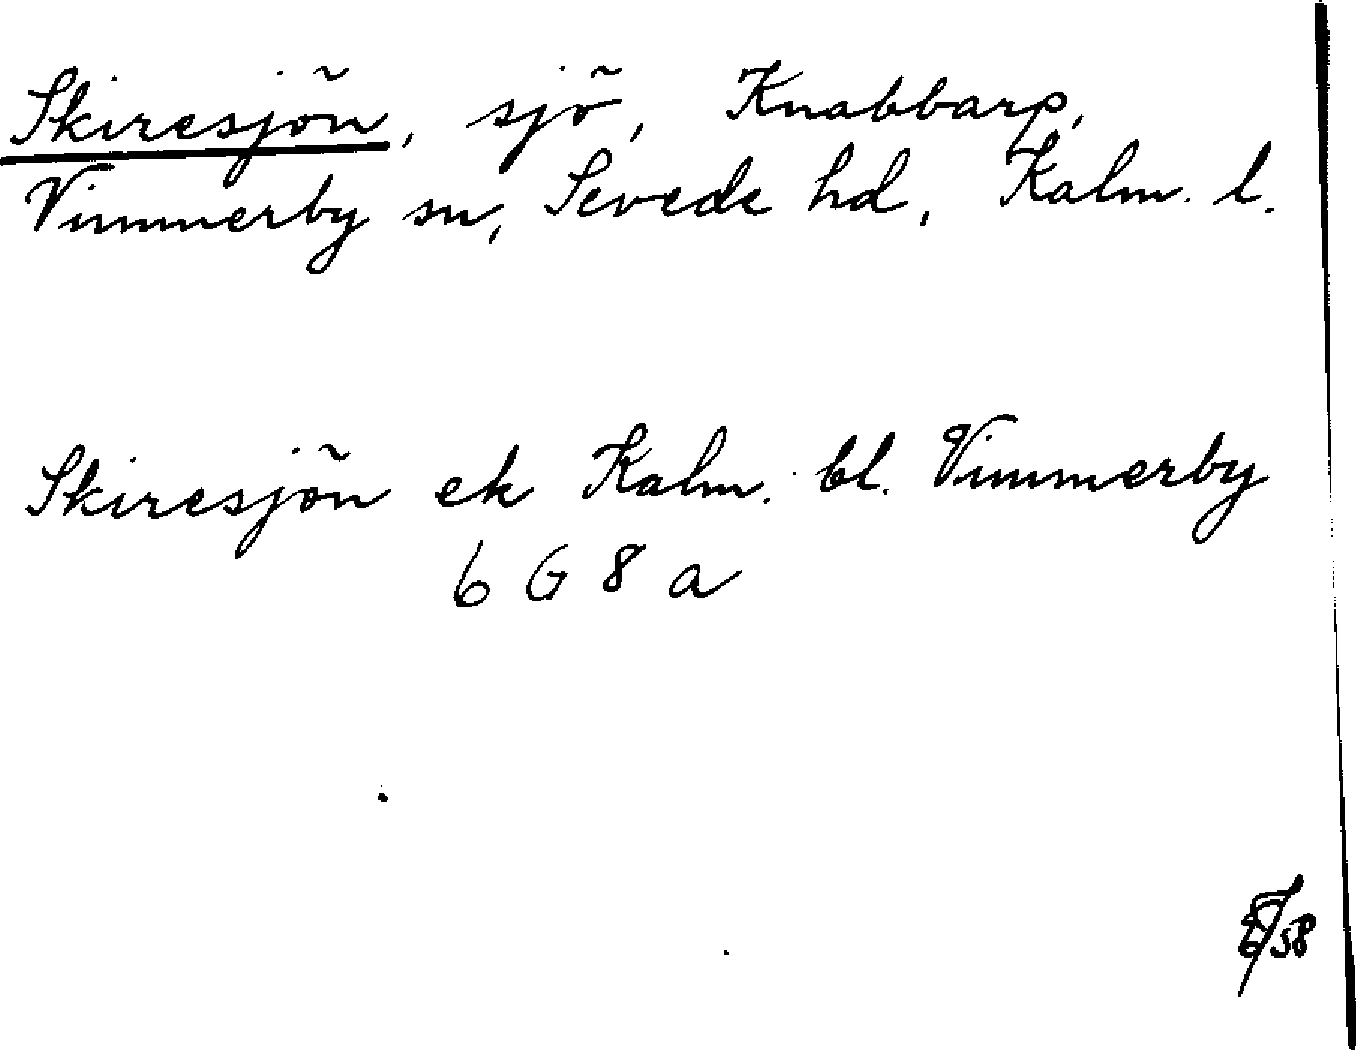 Skiresjön, sjö, Knabbarp,
Vimmerby sn, Sevede hd, Kalm. l.
Skiresjön ek Kalm. bl. Vimmerby
6 G 8 a